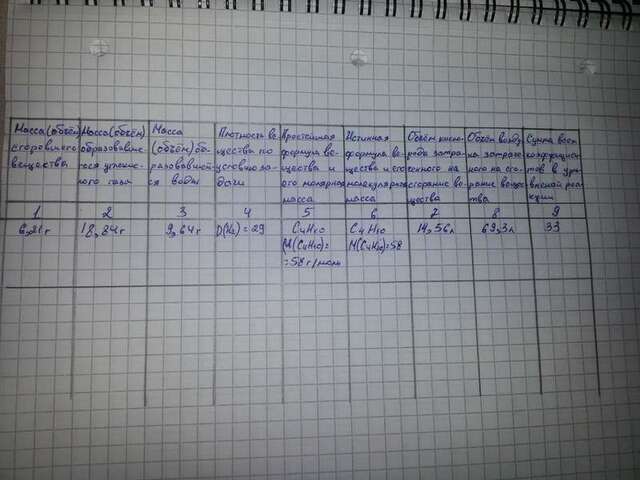 Масса (объём)
сгоревшего
вещества
Масса (объём)
образовавше-
гося углекис-
лого газа
Масса
(объём) об-
разовавшей-
ся воды
Плотность ве-
щества по
условию за-
дачи
Простейшая
формула ве-
щества и
его молярная
масса
Истинная
формула ве-
щества и его
молекулярная
масса
Объём кисло-
рода затра-
ченного на
сгорание ве-
щества
Объём возду-
ха затрачен-
ного на сго-
рание вещес-
тва
Сумма всех
коэффициен-
тов в урав-
нении реак-
ции
1 2 3 4 5 6 7 8 9
6,21г 18,84г 9,64г D(H₂) = 29 C₄H₁₀ C₄H₁₀ 14,56л 69,3л 33
M(C₄H₁₀)= M(C₄H₁₀)=58
=58г/моль